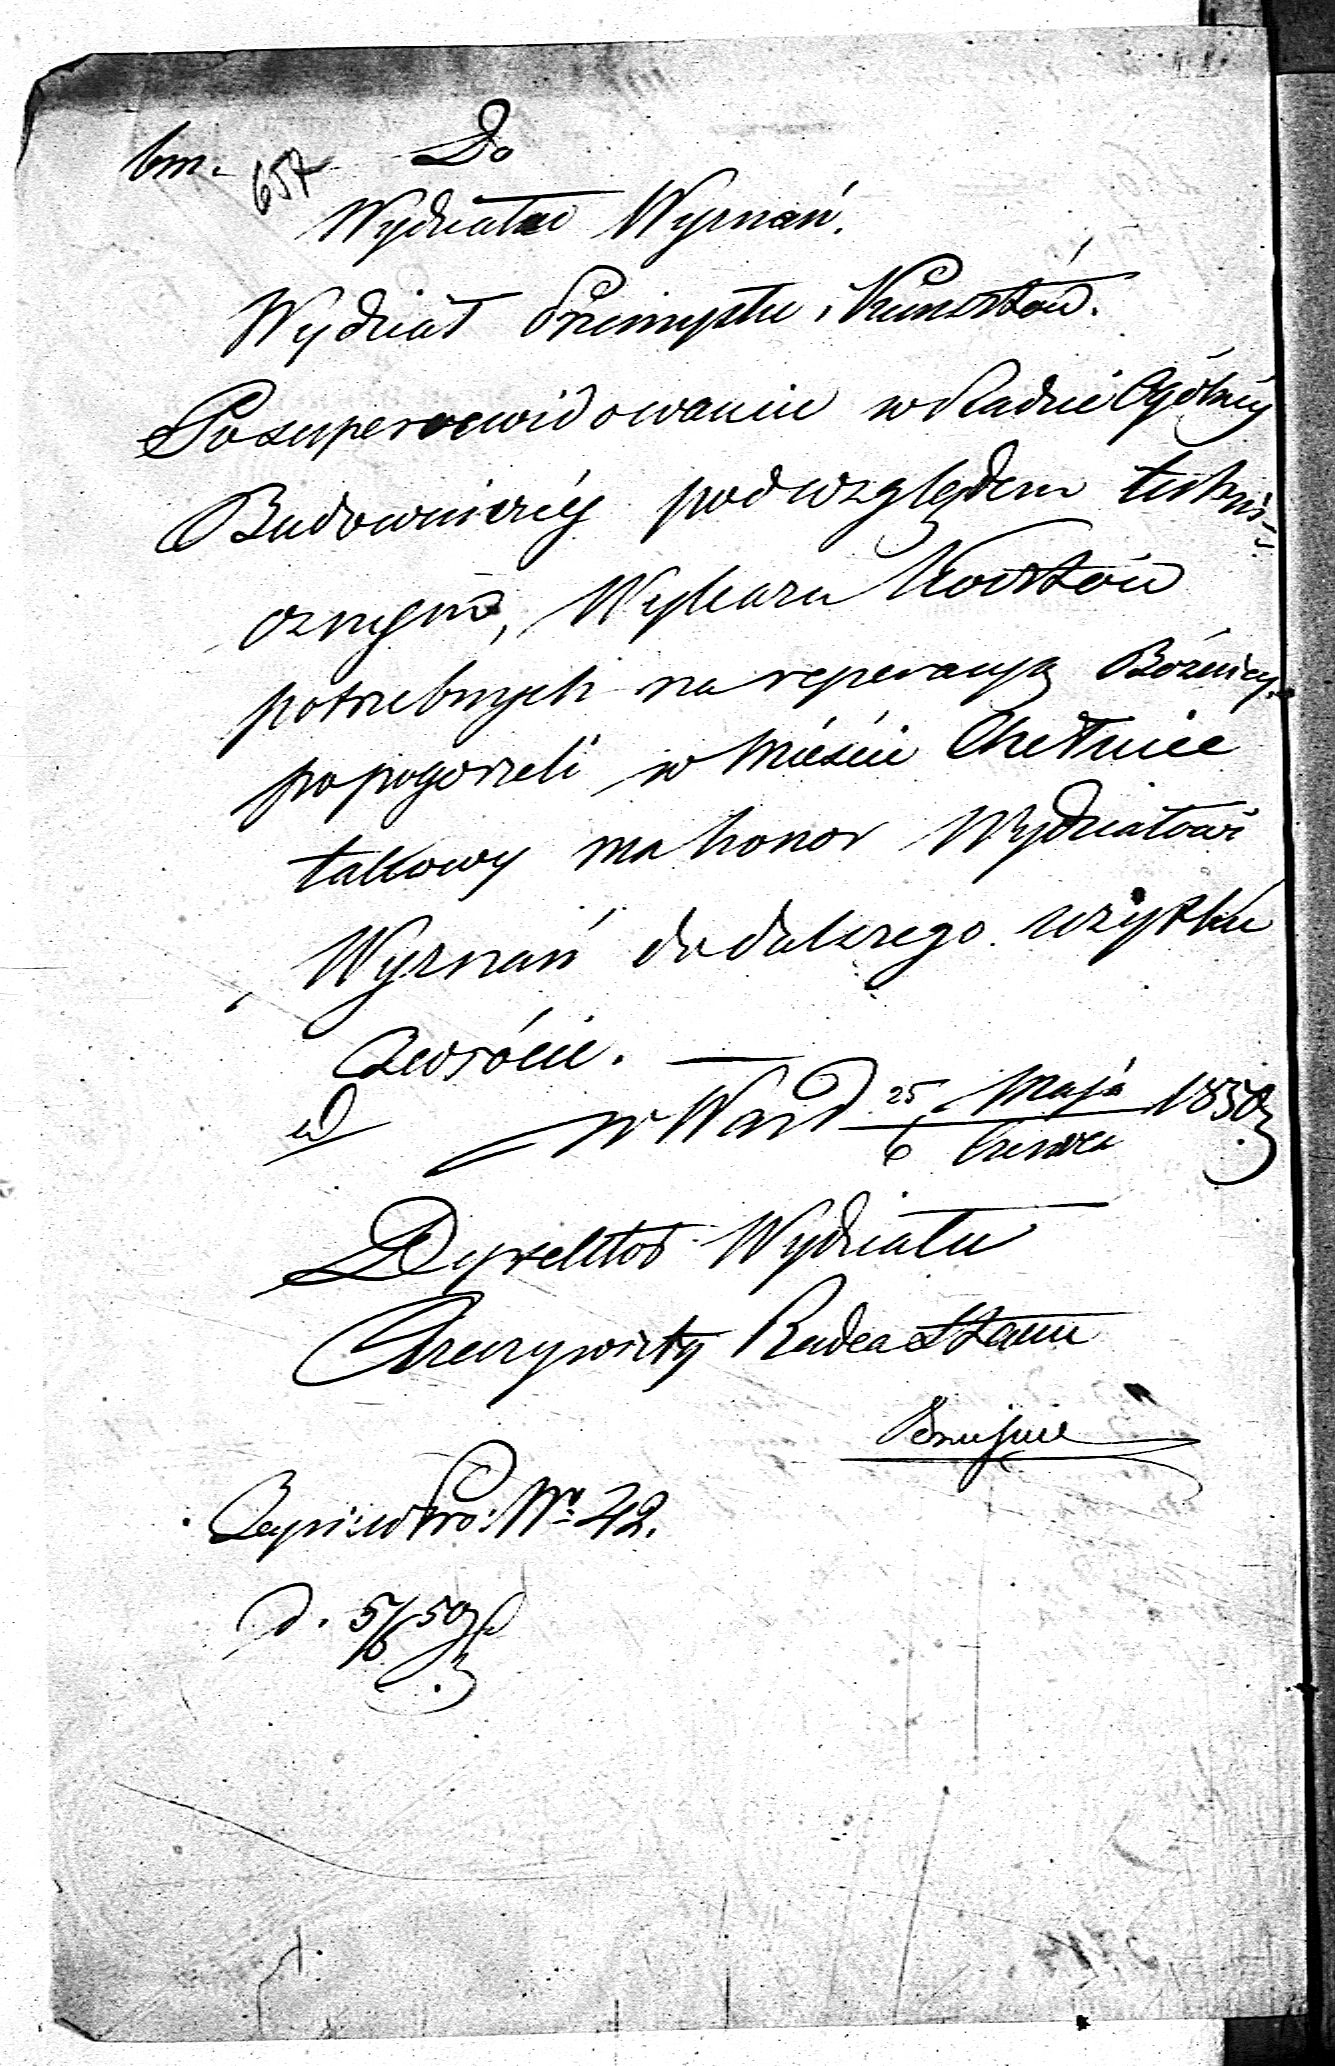 bm. 657 Do
Wydziału Wyznań.
Wydział Przemysłu i Kunsztów.
Po superrewidowaniu w Radzie Ogólnéj
Budowniczéj pod względem techni-
cznym, Wykazu Kosztów
potrzebnych na reperacyą Bóżnicy
po pogorzeli w Mieście Chełmie
takowy ma honor Wydziałowi
Wyznań do dalszego użytku
zwrócić.
w Warś 25 Maja 1850
6 Czerwca
Dyrektor Wydziału
Rzeczywisty Radca Stanu
Zapi: w Pro: No 42.
d. 5/6 50